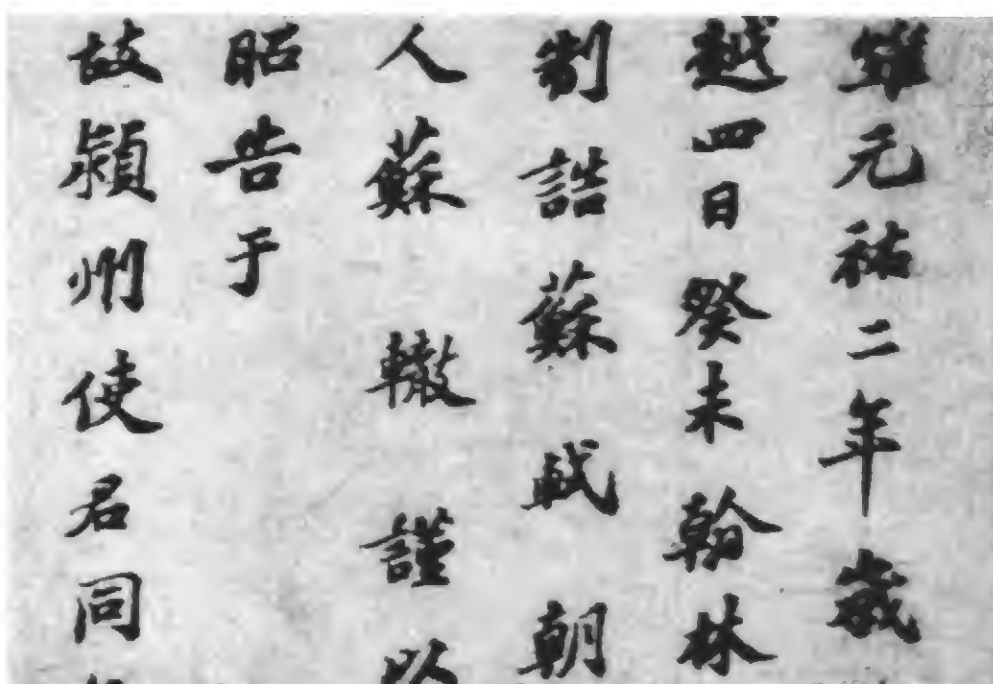 維元祐二年歲
越四日癸未翰林
制誥蘇軾朝
人蘇轍謹以
昭告于
故潁州使君同